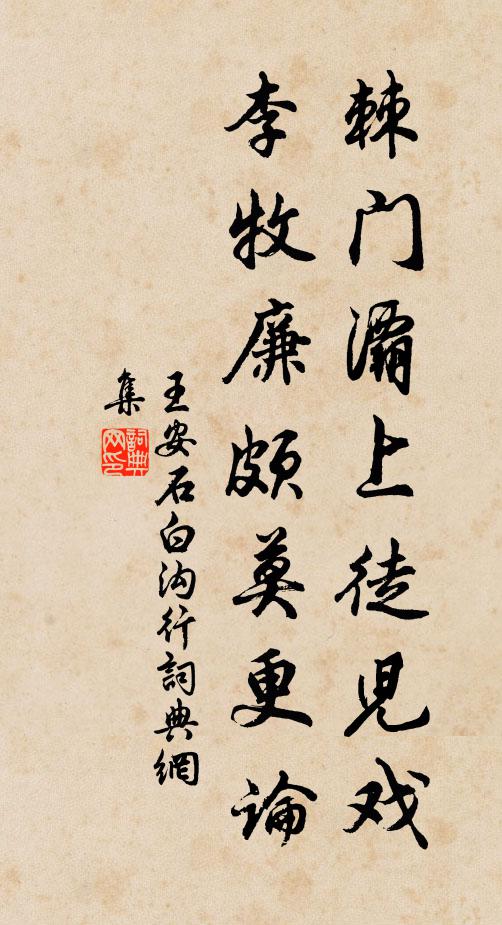 棘门灞上徒児戏
李牧廉颇莫更论
王安石白沟行詞典網
集
詞典网印